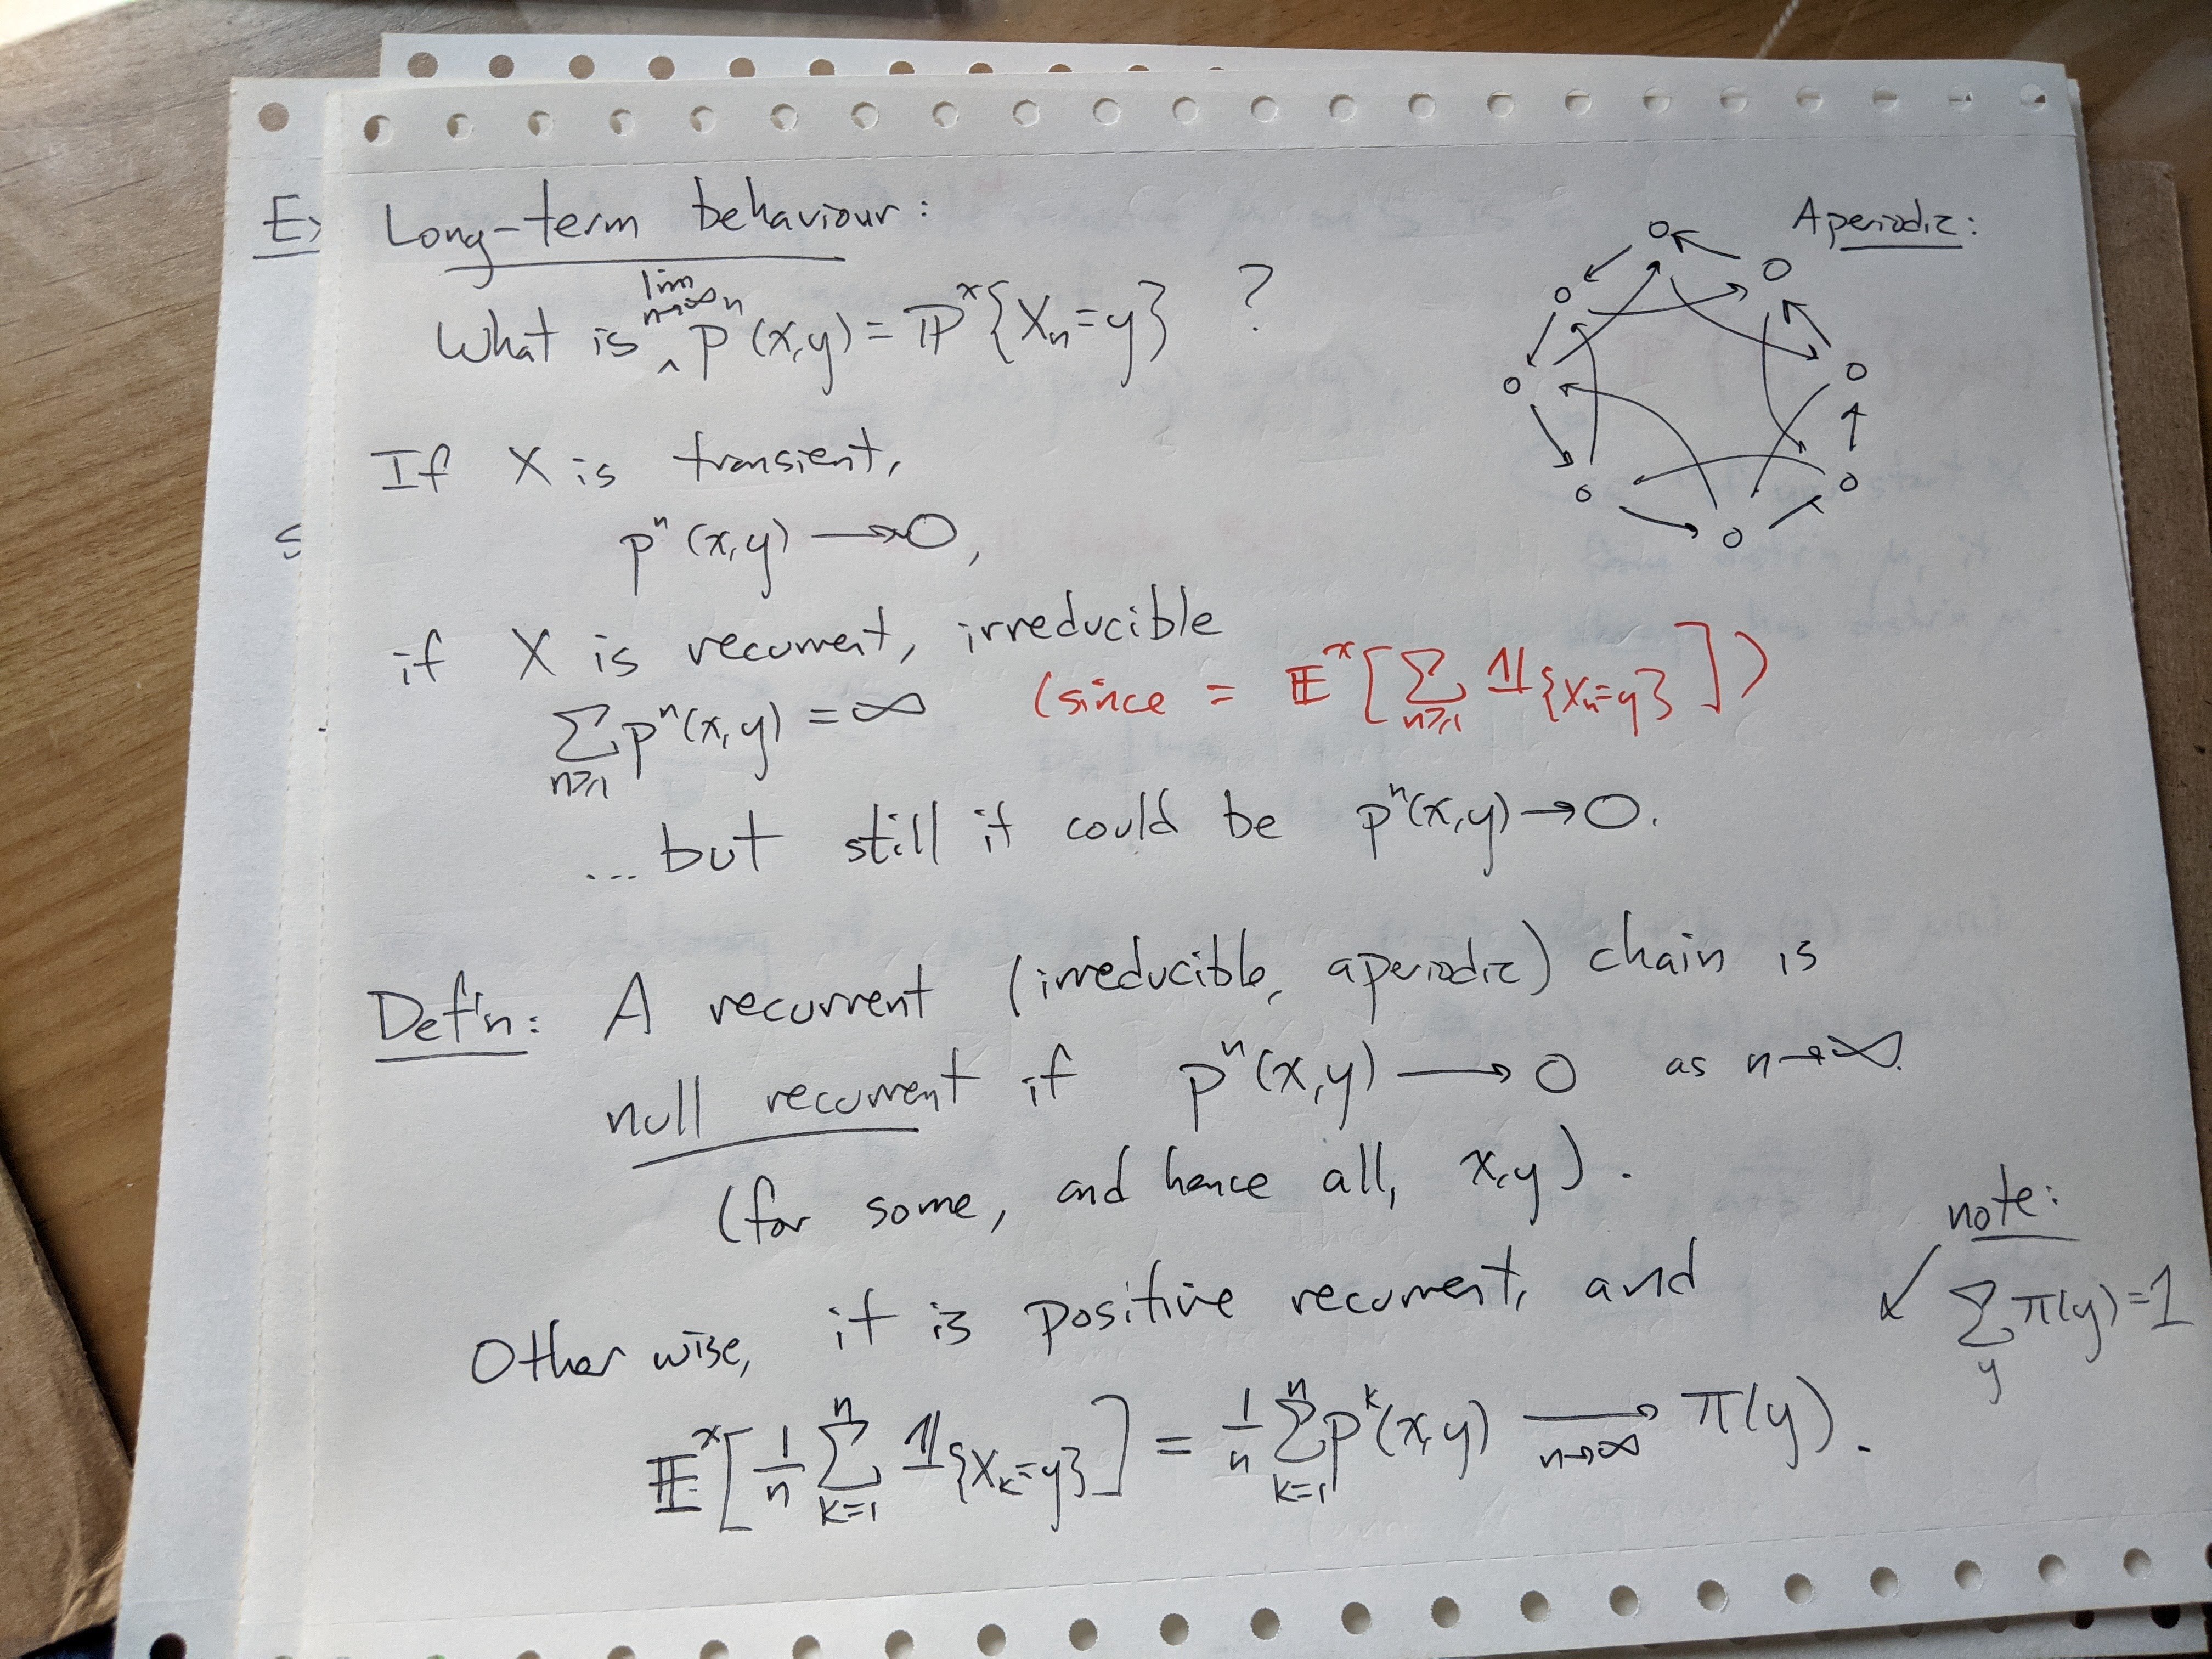 Long-term behaviour:
Aperiodic:
What is lim n→∞ pⁿ(x,y) = ℙˣ{Xₙ=y} ?
If X is transient,
pⁿ(x,y) → 0,
if X is recurrent, irreducible
Σ_{n≥1} pⁿ(x,y) = ∞ (since = 𝔼ˣ[Σ_{n≥1} 𝟙_{Xₙ=y}])
...but still it could be pⁿ(x,y) → 0.
Def'n: A recurrent (irreducible, aperiodic) chain is
null recurrent if pⁿ(x,y) → 0 as n→∞.
(for some, and hence all, x,y).
Otherwise, it is positive recurrent, and
note:
Σ_y π(y) = 1
𝔼ˣ[1/n Σ_{k=1}^n 𝟙_{X_k=y}] = 1/n Σ_{k=1}^n pᵏ(x,y) →_{n→∞} π(y).